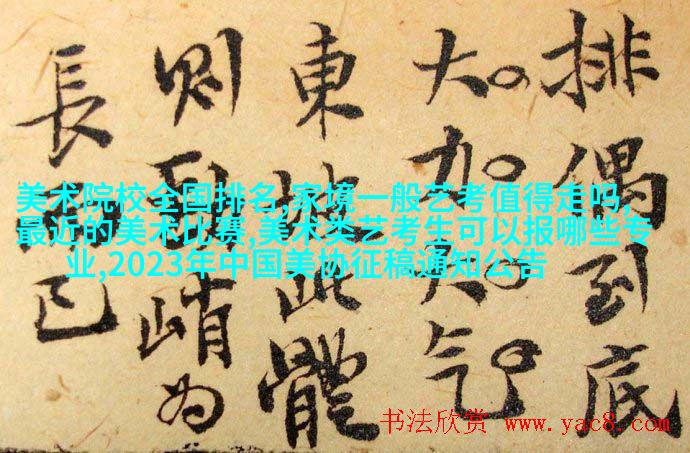 排偶到底
大加大气
東坡此體
則峭为
長而已
美术院校全国排名,家境一般艺考值得走吗,
最近的美术比赛,美术类艺考生可以报哪些专
业,2023年中国美协征稿通知公告
书法欣赏 www.yac8.com